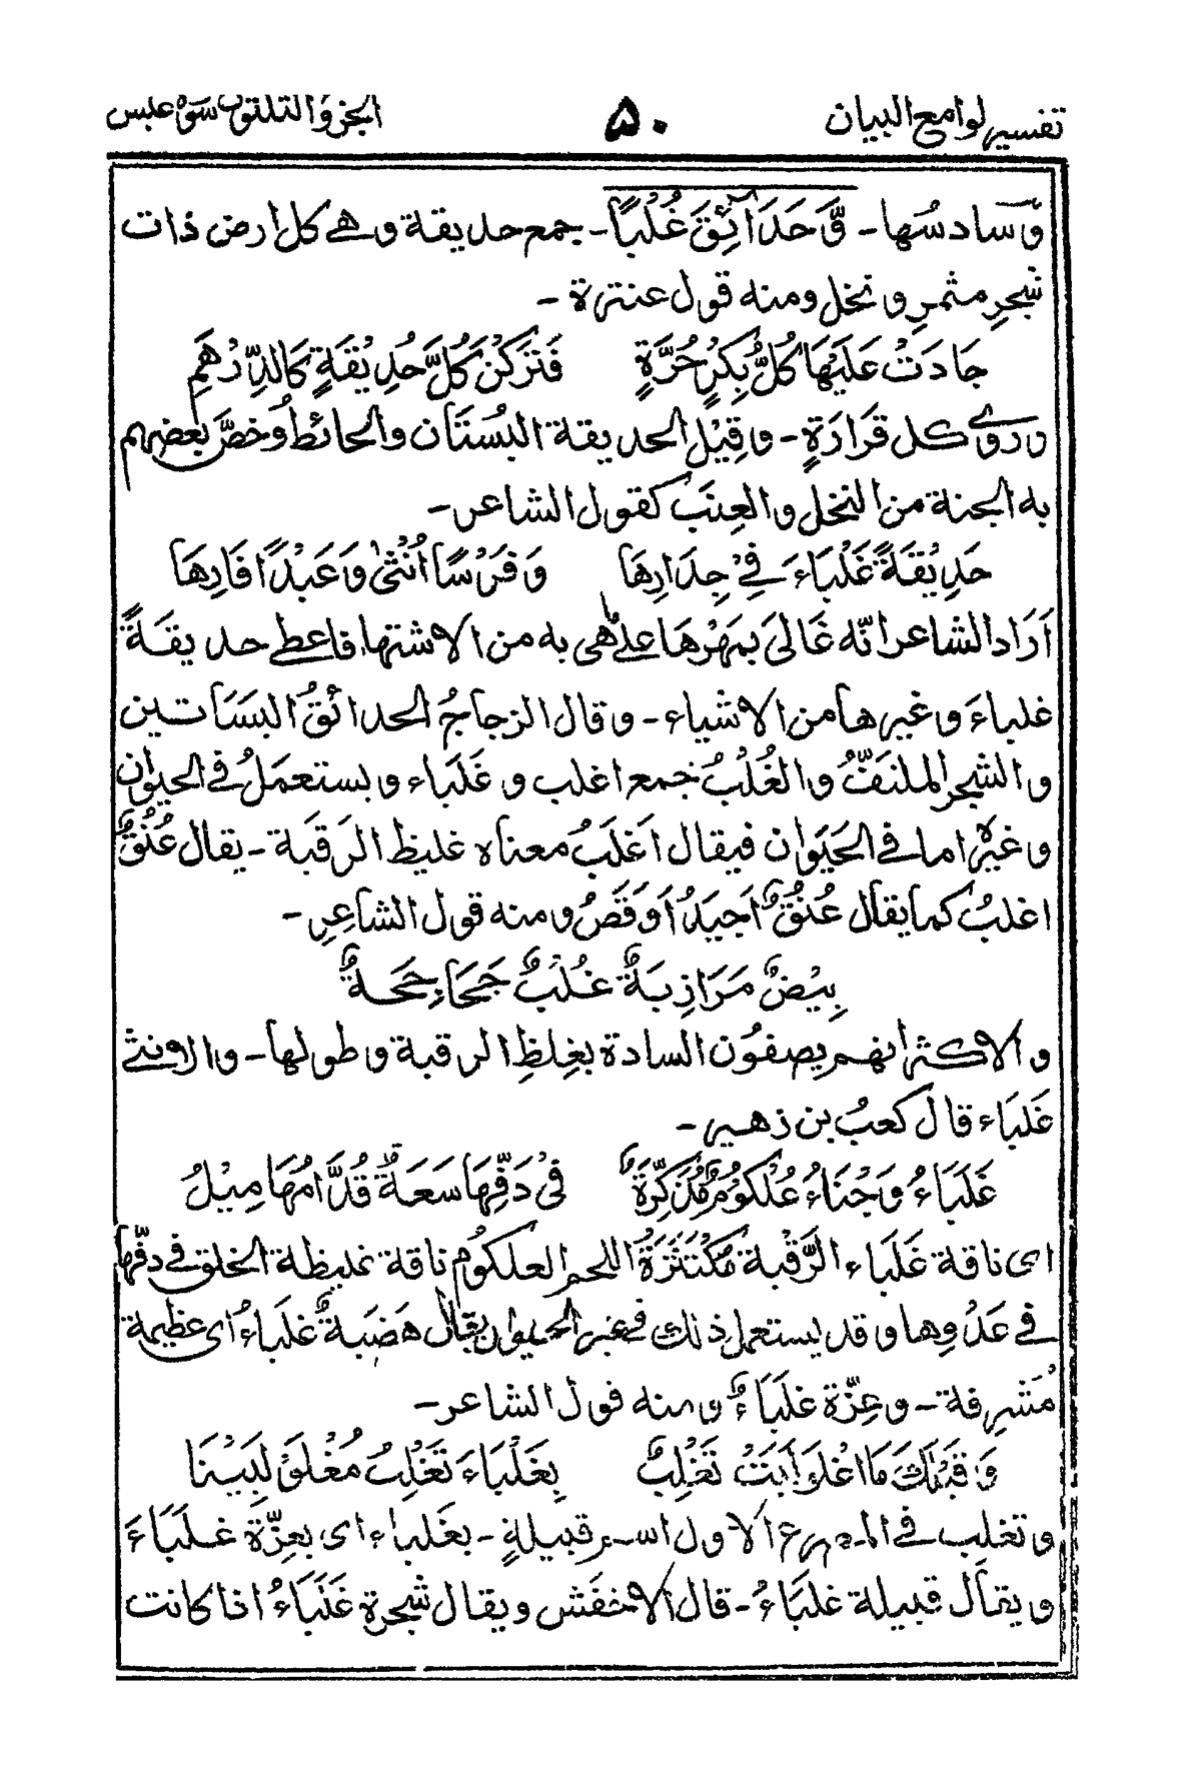 تفسير لوامع البيان ۵۰ الجزو الثلثون سورة عبس
وّسادسُها - وَّحَدَائِقَ غُلْبًا - جمع حديقة وهي كل ارض ذات
شجرٍ مثمرٍ ونخل ومنه قول عنترة -
جَادَتْ عَلَيْهَا كُلُّ بِكْرٍ حُرَّةٍ فَتَرَكْنَ كُلَّ حُدِيْقَةٍ كَالدِّرْهَمِ
وروى كل قَرَارَةٍ - وقِيْلَ الحديقة البُسْتَان والحائطُ وخصَّ بعضهم
به الجنة من النخل والعِنَب كقول الشاعر -
حَدِيْقَةً غَلْبَاءَ فِيْ جِدَارِهَا وَفَرْسًا اُنْثٰى وَعَبْدًا فَارِهَا
اَرَادَ الشاعر انّه غَالىَ بمَهْرِهَا على ماهى به من الاشتهاء فاعطى حديقةً
غلباءَ وغيرها من الاشياء - وقال الزجاجُ الحدائقُ البسَاتين
والشجر الملتفُّ والغُلْبُ جمع اغلب وغَلبَاء ويستعمَلُ في الحيوان
وغيرِه اما في الحَيَوان فيقال اَغلَبُ معناه غليظ الرَقبَة - يقال عُنُقٌ
اغلبُ كما يقال عُنُقٌ اَجيَدُ اَوقَصُ ومنه قول الشاعِرِ -
بِيْضٌ مَرَازِبَةٌ غُلْبٌ جَحَاجِحَةٌ
والاكثر انهم يصفوُن السادة بغِلظِ الرقبة وطولها - والاونثى
غَلبَاء قال كعبُ بن زهير -
غَلبَاءُ وَجْنَاءُ عُلْكُوْمٌ مُذَكَّرَةٌ فِىْ دَفِّهَا سَعَةٌ قُدَّامُهَا مِيْلُ
اى ناقة غَلبَاء الرَّقْبة مُكْتَنَزَةُ اللحم العلكُوم ناقة غليظة الخلق في دفّها
في عَدْوِها وقد يستعمل ذلك في غير الحيوان يقال هَضَبةٌ غلبَاءُ اى عظيمة
مُشرِفة - وعِزّة غلبَاءُ ومنه قول الشاعر -
وَقَبْلَكَ مَا اغْلَوَلَبَتْ تَغْلِبُ بِغَلْبَاءَ تَغْلِبُ مُغْلَوْلِبَيْنَا
وتغلب في المصرع الاول اسم قبيلةٍ - بغَلباء اى بعِزّةٍ غلَبَاءَ
ويقال قبيلة غلبَاءُ - قال الاخفَش ويقال شجرة غَلبَاءُ اذا كانت